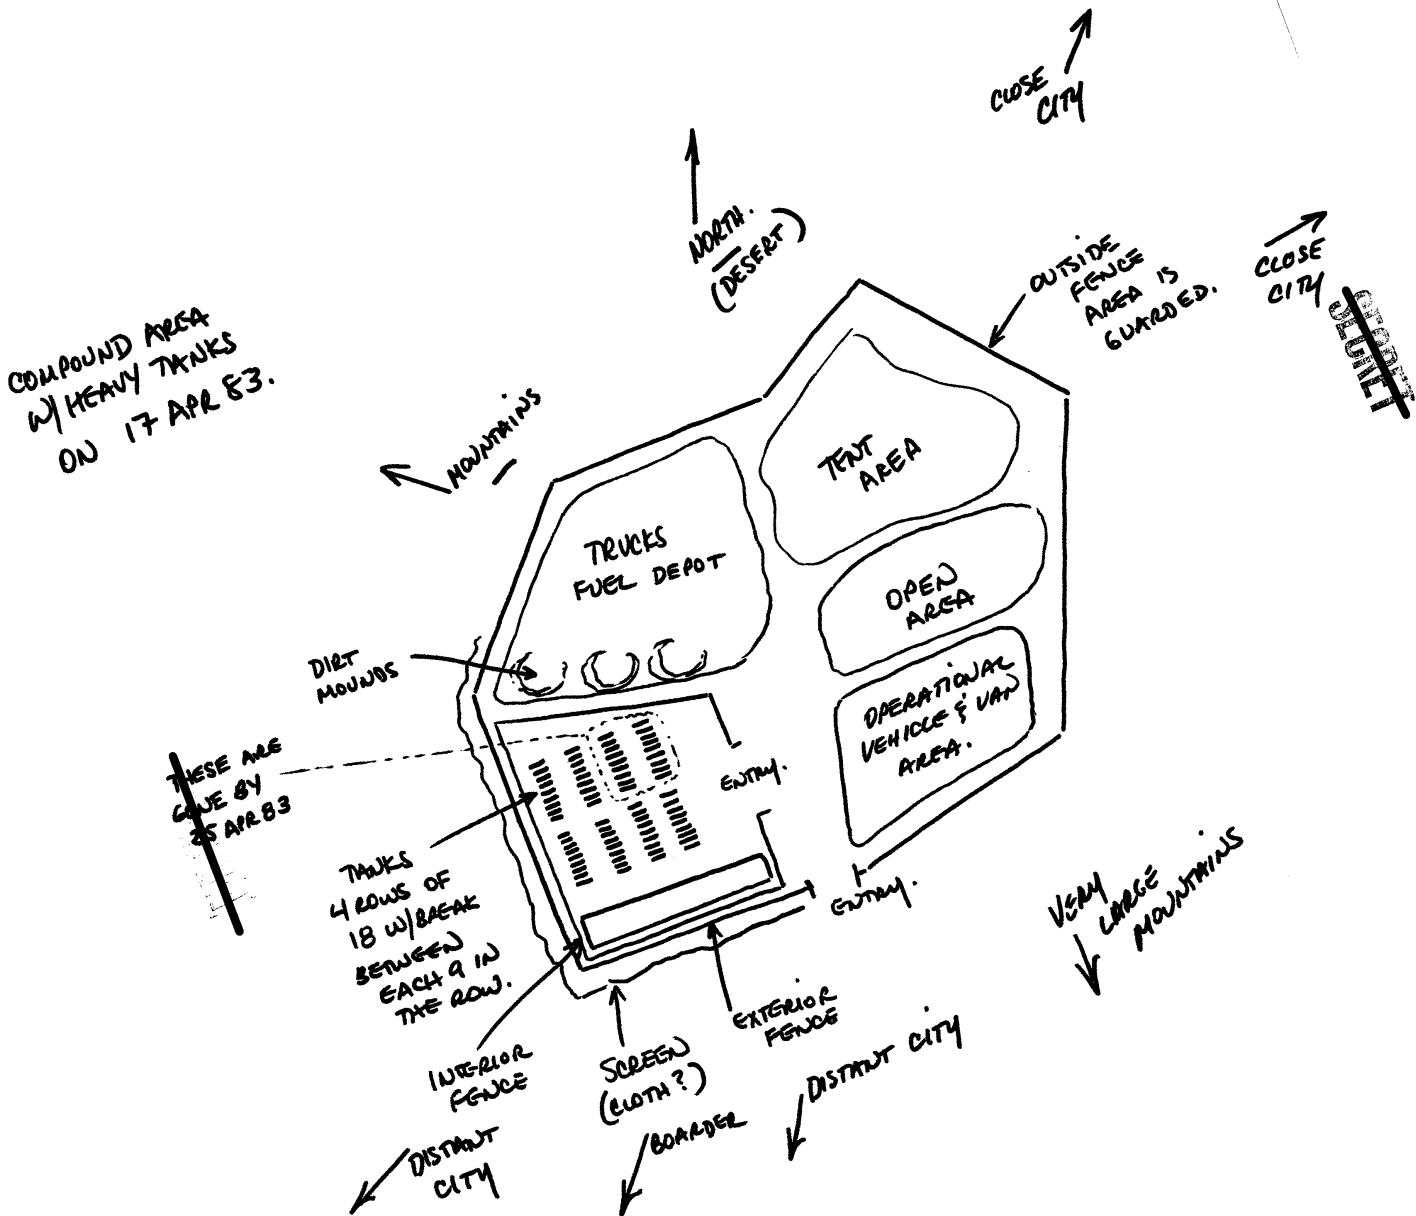 CLOSE
CITY
NORTH.
(DESERT)
OUTSIDE
FENCE
AREA IS
GUARDED.
CLOSE
CITY
SECRET
SECRET
COMPOUND AREA
W/ HEAVY TANKS
ON 17 APR 83.
MOUNTAINS
TENT
AREA
TRUCKS
FUEL DEPOT
OPEN
AREA
DIRT
MOUNDS
OPERATIONAL
VEHICLE & VAN
AREA.
THESE ARE
GONE BY
25 APR 83
ENTRY.
TANKS
4 ROWS OF
18 W/BREAK
BETWEEN
EACH 9 IN
THE ROW.
ENTRY.
VERY
LARGE
MOUNTAINS
INTERIOR
FENCE
SCREEN
(CLOTH?)
EXTERIOR
FENCE
DISTANT CITY
BOARDER
DISTANT
CITY